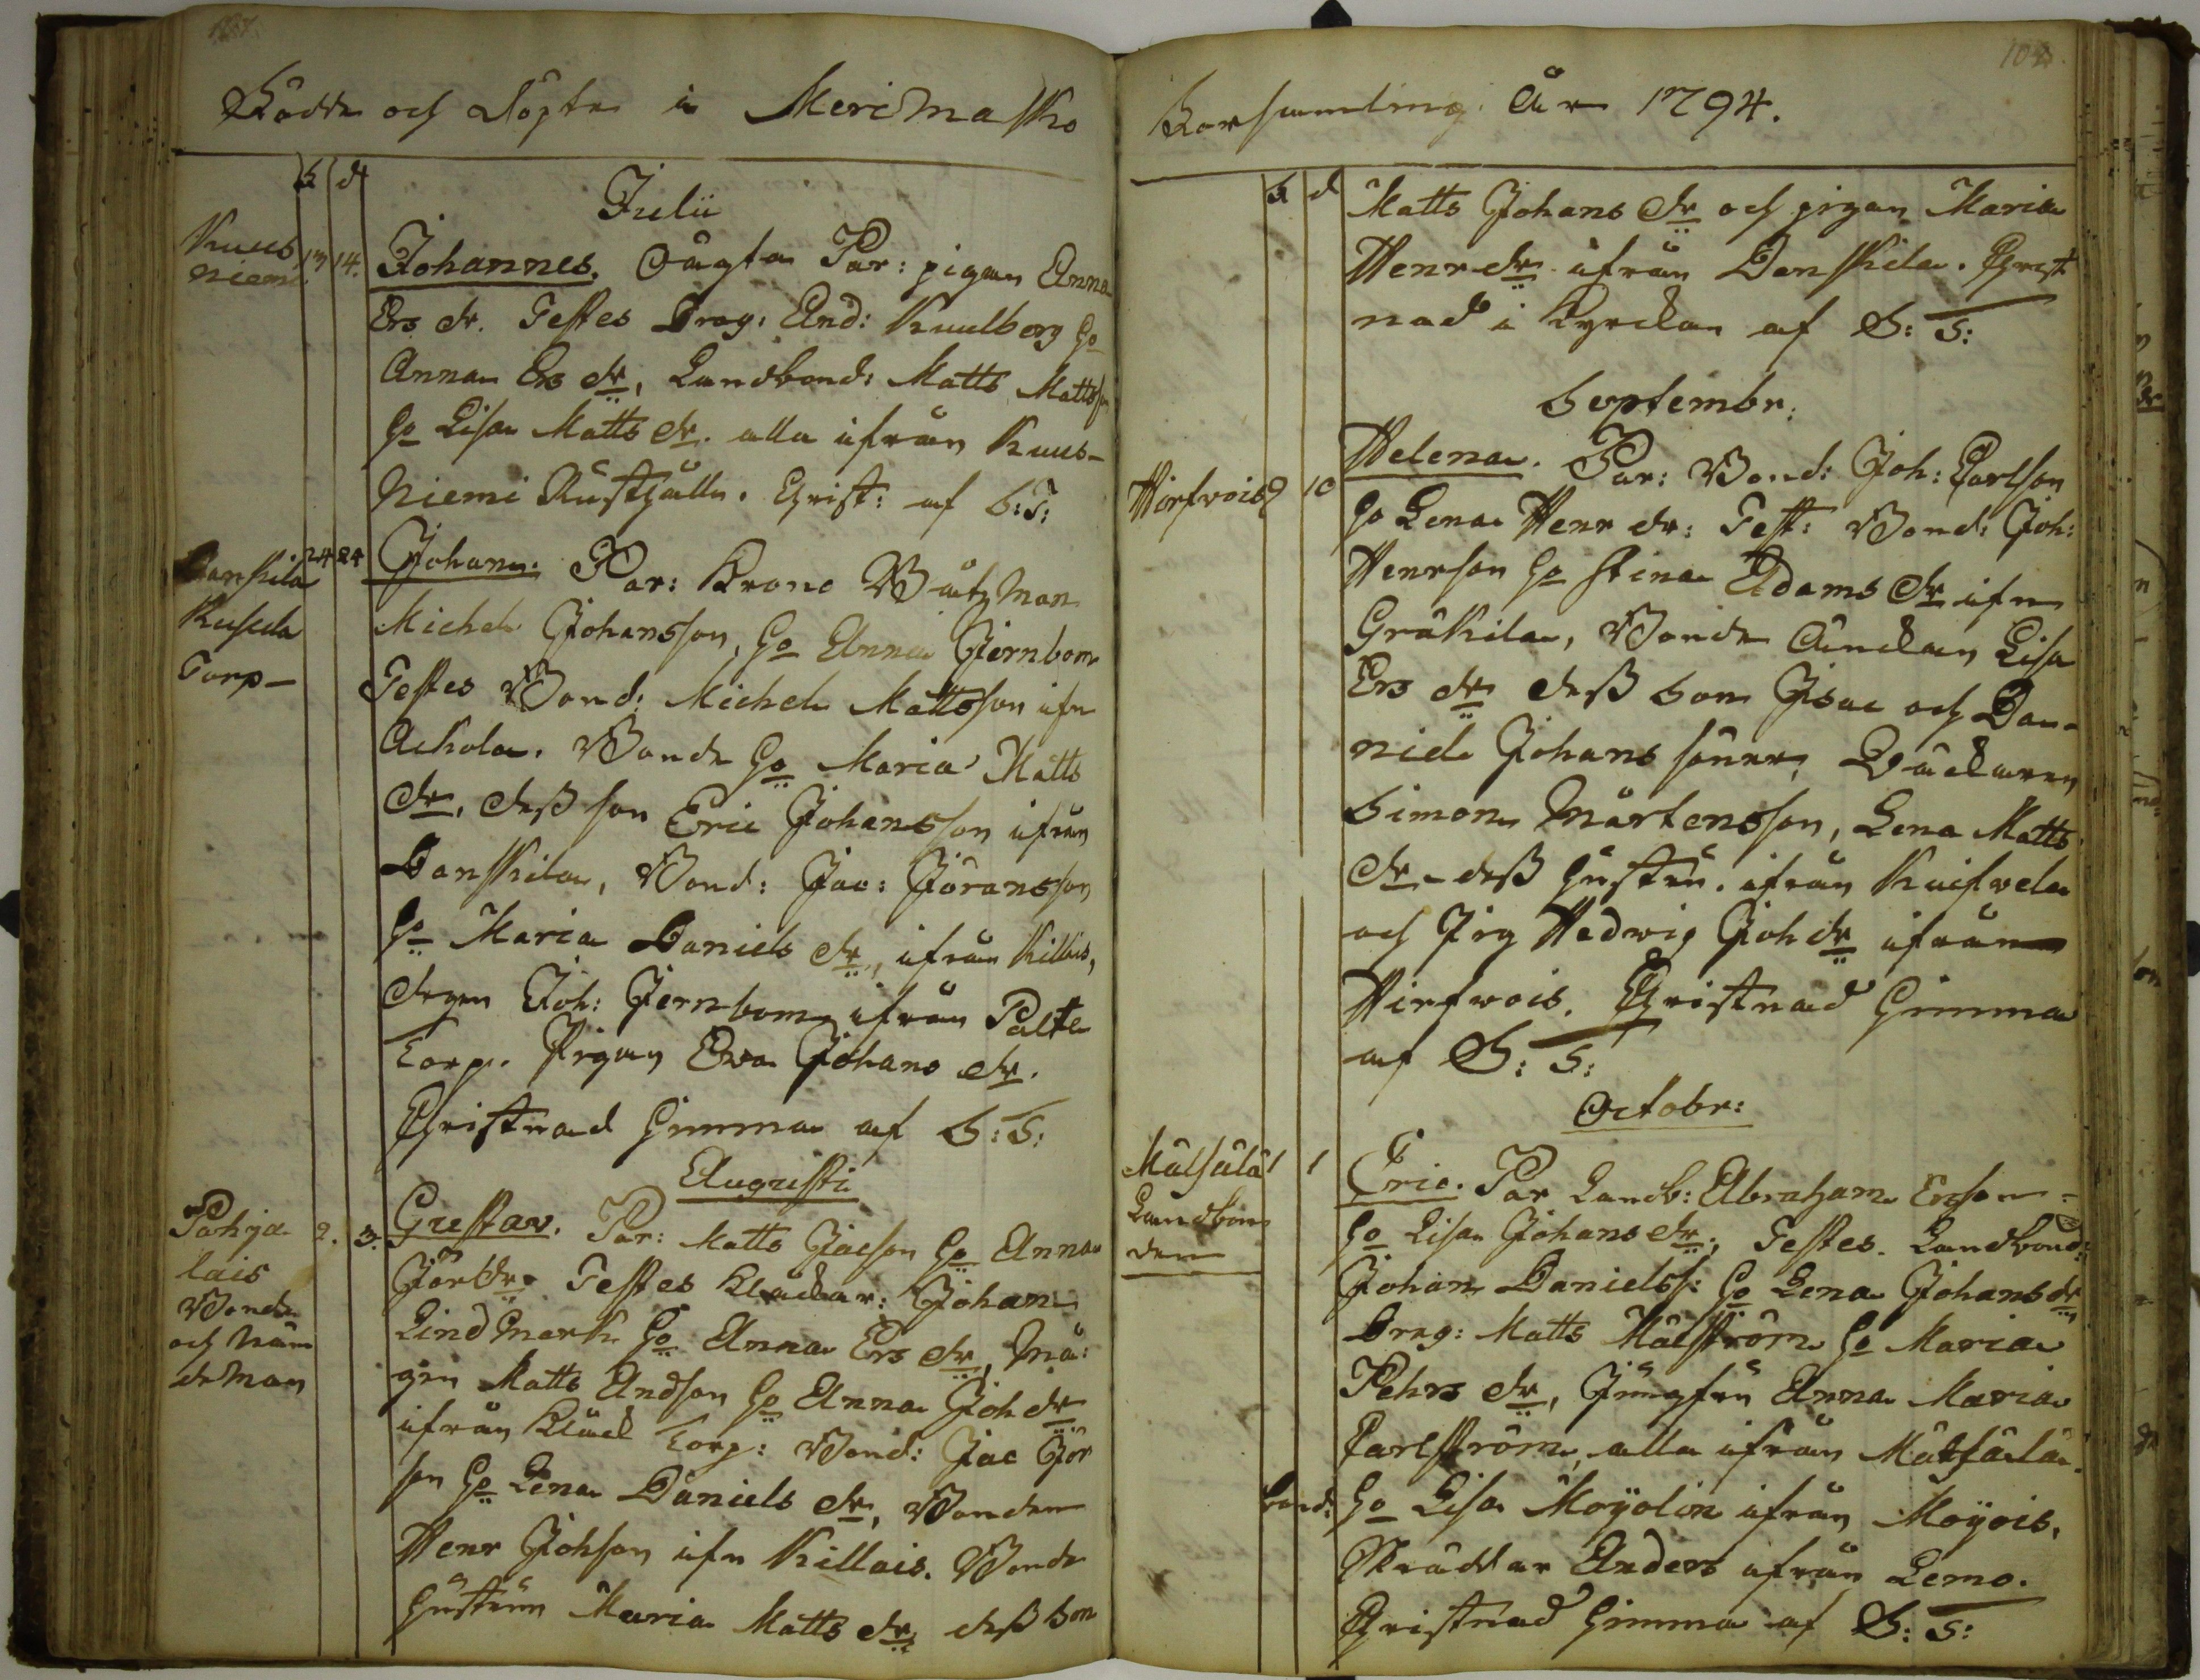 Födde och Döpte i Merimasko
f d
Julii
Kuus
niemi
13 14. Johannes. Oägta Par: pigan Anna
Ers dr. Testes Drag: And: Kuulberg Ho
Anna Ers dr, Landbond: Matts Mattsson
Ho Lisa Matts dr. alla ifrån Kuus-
niemi Rusthålls. Christ: af S: S:
Danskila
Kusela
Torp-
24 24 Johan. Par: Krono Båtzman
Michel Johansson, Ho Anna Jernbom
Testes Bond: Michel Mattsson ifrn
Ackola. Bonde Ho Maria Matts
dr, dess son Eric Johansson ifrån
Danskila, Bond: Jac: Jöransson
Ho Maria Daniels dr, ifrån Killais,
drgen Joh: Jernbom ifrån Palta
Torp. Pigan Ewa Johans dr.
Christnad hemma af S: S:
Augusti
Pohja
lais
Bonde
och näm
deman
2. 3. Gustav. Par: Matts Jacson Ho Anna
Jör dr. Testes Klåckar: Johan
Lindmark Ho Anna Ers dr, Må:
gen Matts Andson Ho Anna Joh dr
ifrån Klåck Torp: Bond: Jac Jör
son Ho Lena Daniels dr, Bonden
Henr Johson ifrn Killais. Bonde
hustrun Maria Matts dr, dess son
Forsamling År 1794.
f d
Matts Johans dr och pigan Maria
Henr dr ifrån Danskila. Christ
nad i Kyrckan af S: S:
Septembr:
Hirfvois
9 10
Helena. Par: Bond: Joh: Carlson
Ho Lena Henr dr: Test: Bond: Joh:
Henrson Ho Stina Adams dr ifrn
Gråkila, Bonde Änckan Lisa
Ers dr dess son Isac och Da-
niel Johans söner, Bäckaren
Simon Mårtensson, Lena Matts
dr dess hustru. ifrån Kaifvela
och Pig Hedwig Joh dr ifrån
Hirfwois. Christnad hemma
af S: S:
Octobr:
Målsala
Landbon
den
1 1 Eric. Par Landb: Abraham Ersson
Ho Lisa Johans dr, Testes. Landbond:
Johan Daniels: Ho Lena Johans dr
Drag: Matts Målström Ho Maria
Pehrs dr, Jungfru Anna Maria
Carlström, alla ifrån Målsala.
bond: Ho Lisa Moyolin ifrån Moyois,
Skräddar Anders ifrån Lemo.
Christnad hemma af S: S: